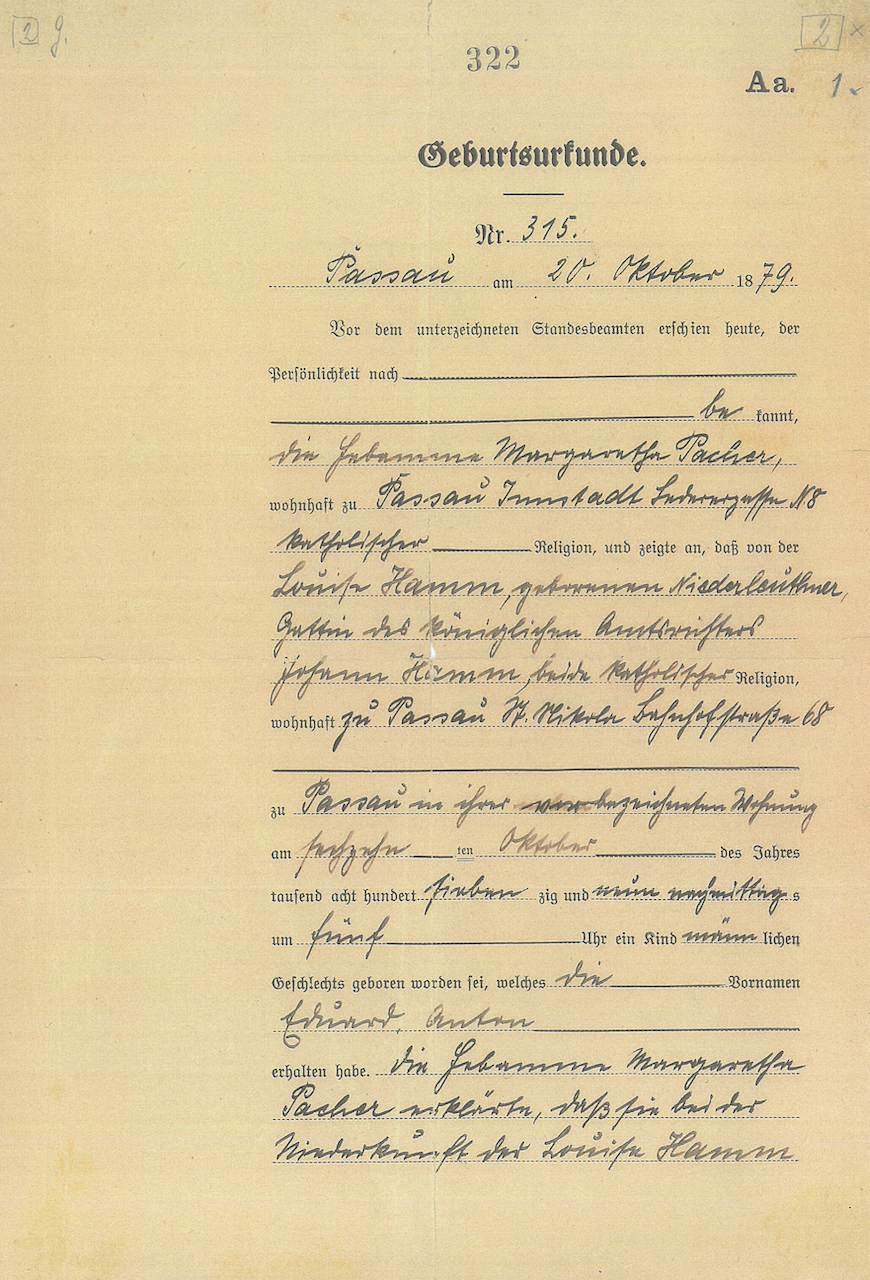 2 g.
2 ×
322
Aa. 1.
Geburtsurkunde.
Nr. 315.
Passau am 20. Oktober 1879.
Vor dem unterzeichneten Standesbeamten erschien heute, der
Persönlichkeit nach
be kannt,
die Hebamme Margaretha Pacher,
wohnhaft zu Passau Innstadt Lederergasse N 8
katholischer Religion, und zeigte an, daß von der
Louise Hamm, geborenen Niederleuthner,
Gattin des königlichen Amtsrichters
Johann Hamm, beide katholischer Religion,
wohnhaft zu Passau St. Nikola Bahnhofstraße 68
zu Passau in ihrer vorbezeichneten Wohnung
am sechzehn ten Oktober des Jahres
tausend acht hundert sieben zig und neun nachmittag s
um fünf Uhr ein Kind männ lichen
Geschlechts geboren worden sei, welches die Vornamen
Eduard, Anton
erhalten habe. Die Hebamme Margaretha
Pacher erklärte, daß sie bei der
Niederkunft der Louise Hamm